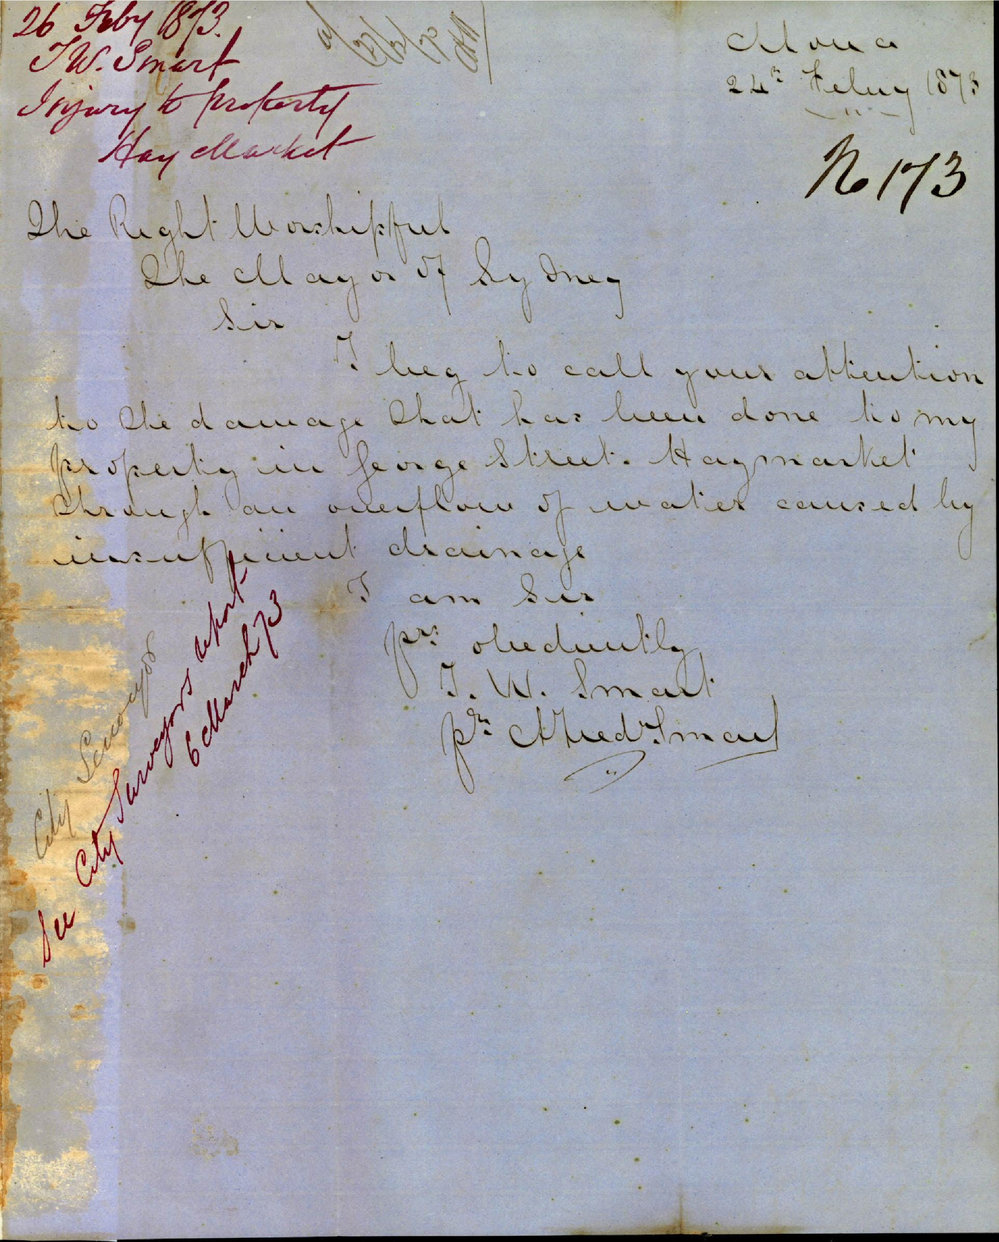 26 Feby 1873.
T.W. Smart
Injury to property
Hay Market
Mona
24th Febuy 1873
No 173
The Right Worshipful
The Mayor of Sydney
Sir
I beg to call your attention
to the damage that has been done to my
property in George Street. Haymarket
through an overflow of water caused by
insufficient drainage
I am Sir
yrs obediently
T. W. Smart
pr Alfred Smart
City Surveyor
See City Surveyors report
6 March 73